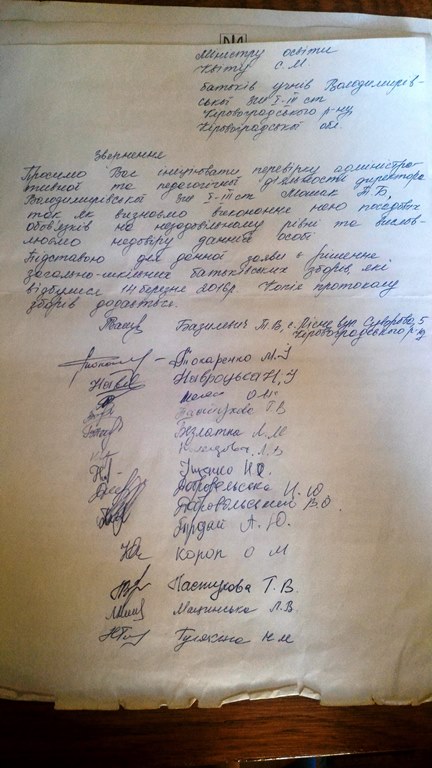 Міністру освіти
Квіту С.М.
батьків учнів Володимирів-
ської зш I-III ст
Кіровоградського р-ну,
Кіровоградської обл.
Звернення
Просимо Вас ініціювати перевірку адміністра-
тивної та педагогічної діяльності директора
Володимирівської зш I-III ст Мошак Т.Б,
так як визнаємо виконання нею посадових
обов'язків на незадовільному рівні та вислов-
люємо недовіру даній особі
Підставою для даної заяви є рішення
загально-шкільних батьківських зборів, які
відбулися 14 березня 2016р. Копія протоколу
зборів додається.
Базилевич Т.В, с. Лісне вул. Суворова, 5
Кіровоградського р-ну
Токаренко М.І
Навроцька Н,І
О.М.
Пастухова Т.В
Безлатня Л.М
Л.В
Іщенко Н.О.
Добровольська Н.Ю
Добровольський В.О.
Гордай А.Ю.
Короп О М
Пастухова Т.В.
Мацинська Л.В.
Н.М